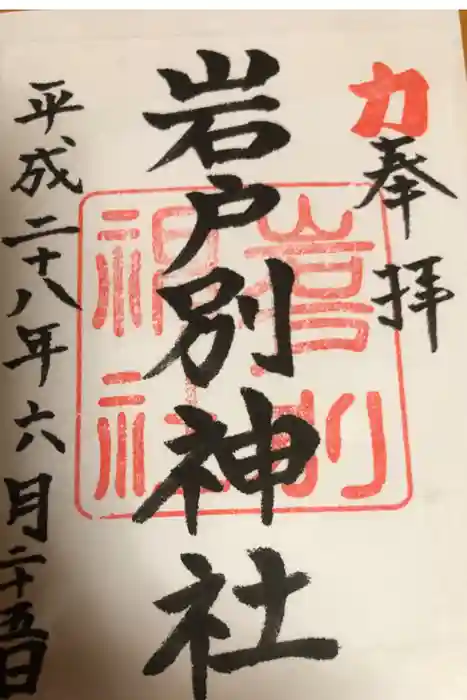 力
奉拝
岩戸別神社
岩戸別
神社
平成二十八年六月二十五日